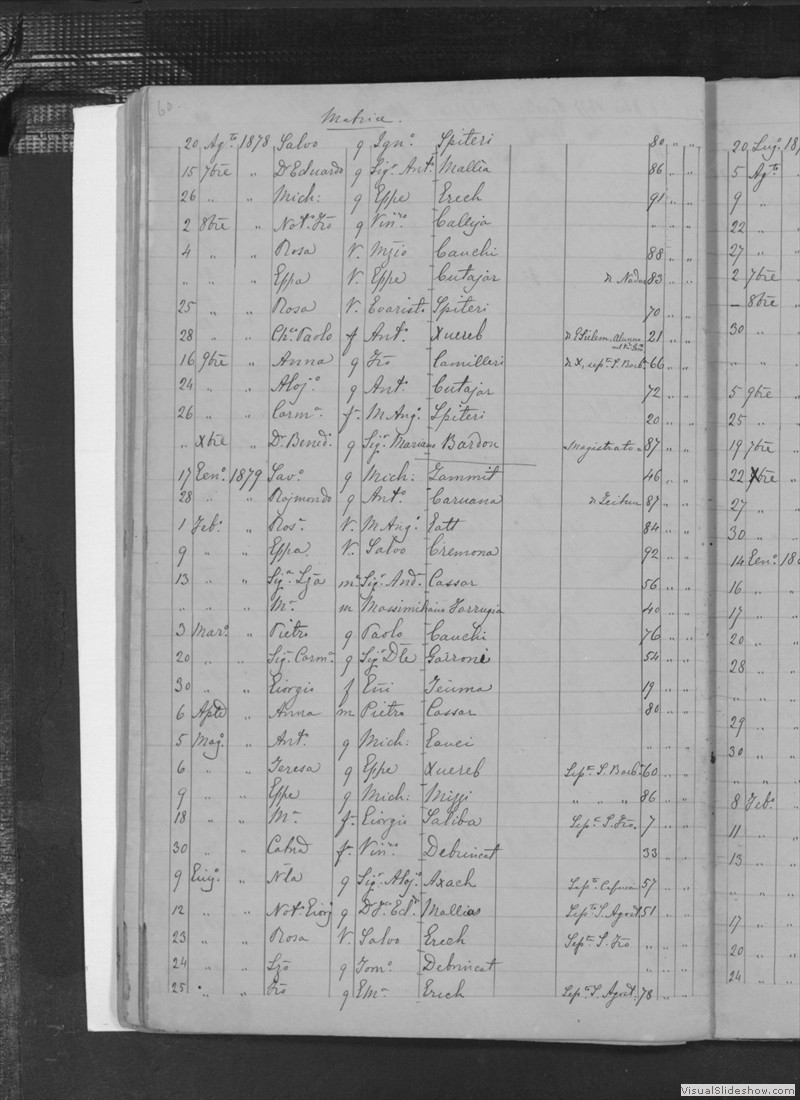 60.
Matrice.
20 Agto 1878 Salvo q Igno. Spiteri 80 " "
15 7bre " Dr Eduardo q Sigr. Ant. Mallia 86 " "
26 " " Mich: q Eppe Grech 91 " "
2 8bre " Notr. Fro q Vinro Calleja " " "
4 " " Rosa V. Mzio Cauchi 88 " "
" " " Eppa V. Eppe Cutajar n Nadur 83 " "
25 " " Rosa V. Evaristo Spiteri 70 " "
28 " " Chco Paolo f Anto. Xuereb 21 " "
16 9bre " Anna q Fro Camilleri n X, sepa S. Barba 66 " "
24 " " Alojo q Anto. Cutajar 72 " "
26 " " Carmo. f. M Ango. Spiteri 20 " "
" Xbre " Dr Bened. q Sigr. Mariano Bardon Magistrato 87 " "
17 Genо. 1879 Savo. q Mich: Zammit 46 " "
28 " " Rajmondo q Anto. Caruana n Zeitun 87 " "
1 Febo. " Rosa. V. M Ango. Gatt 84 " "
9 " " Eppa V. Salvo Cremona 92 " "
13 " " Siga. Lza m Sigr. And. Cassar 56 " "
" " " Ma. m Massimiliano Farrugia 40 " "
3 Maro. " Pietro q Paolo Cauchi 76 " "
20 " " Sigr. Carmo. q Sigr. Dle Garroni 54 " "
30 " " Giorgio f Eml Teuma 19 " "
6 Aple " Anna m Pietro Cassar 80 " "
5 Mago. " Anto. q Mich: Gauci " " "
6 " " Teresa q Eppe Xuereb Sepa S. Barba 60 " "
9 " " Eppe q Mich: Mizzi " " " 86 " "
18 " " Ma. f. Giorgio Saliba Sepa S. Fro. 7 " "
30 " " Catna f. Vinro. Debrincat 33 " "
9 Giuo. " Nla q Sigr. Alojo. Axach 57 " "
12 " " Notr. Giorg q Mallias Sepa S. Agost. 51 " "
23 " " Rosa V. Salvo Grech Sepa S. Fro " " "
24 " " Lzo q Tomo. Debrincat " " "
25 " " Fro q Ema. Grech Sepa S. Agost. 78 " "
20 Lugo. 187
5 Agto.
9 "
22 "
27 "
2 7bre
– 8bre
30 "
" "
5 9bre
25 "
19 7bre
22 Xbre
27 "
30 "
14 Geno. 18
16 "
17 "
20 "
28 "
" "
29 "
30 "
" "
8 Febo.
11 "
13 "
" "
17 "
20 "
24 "
VisualSlideshow.com